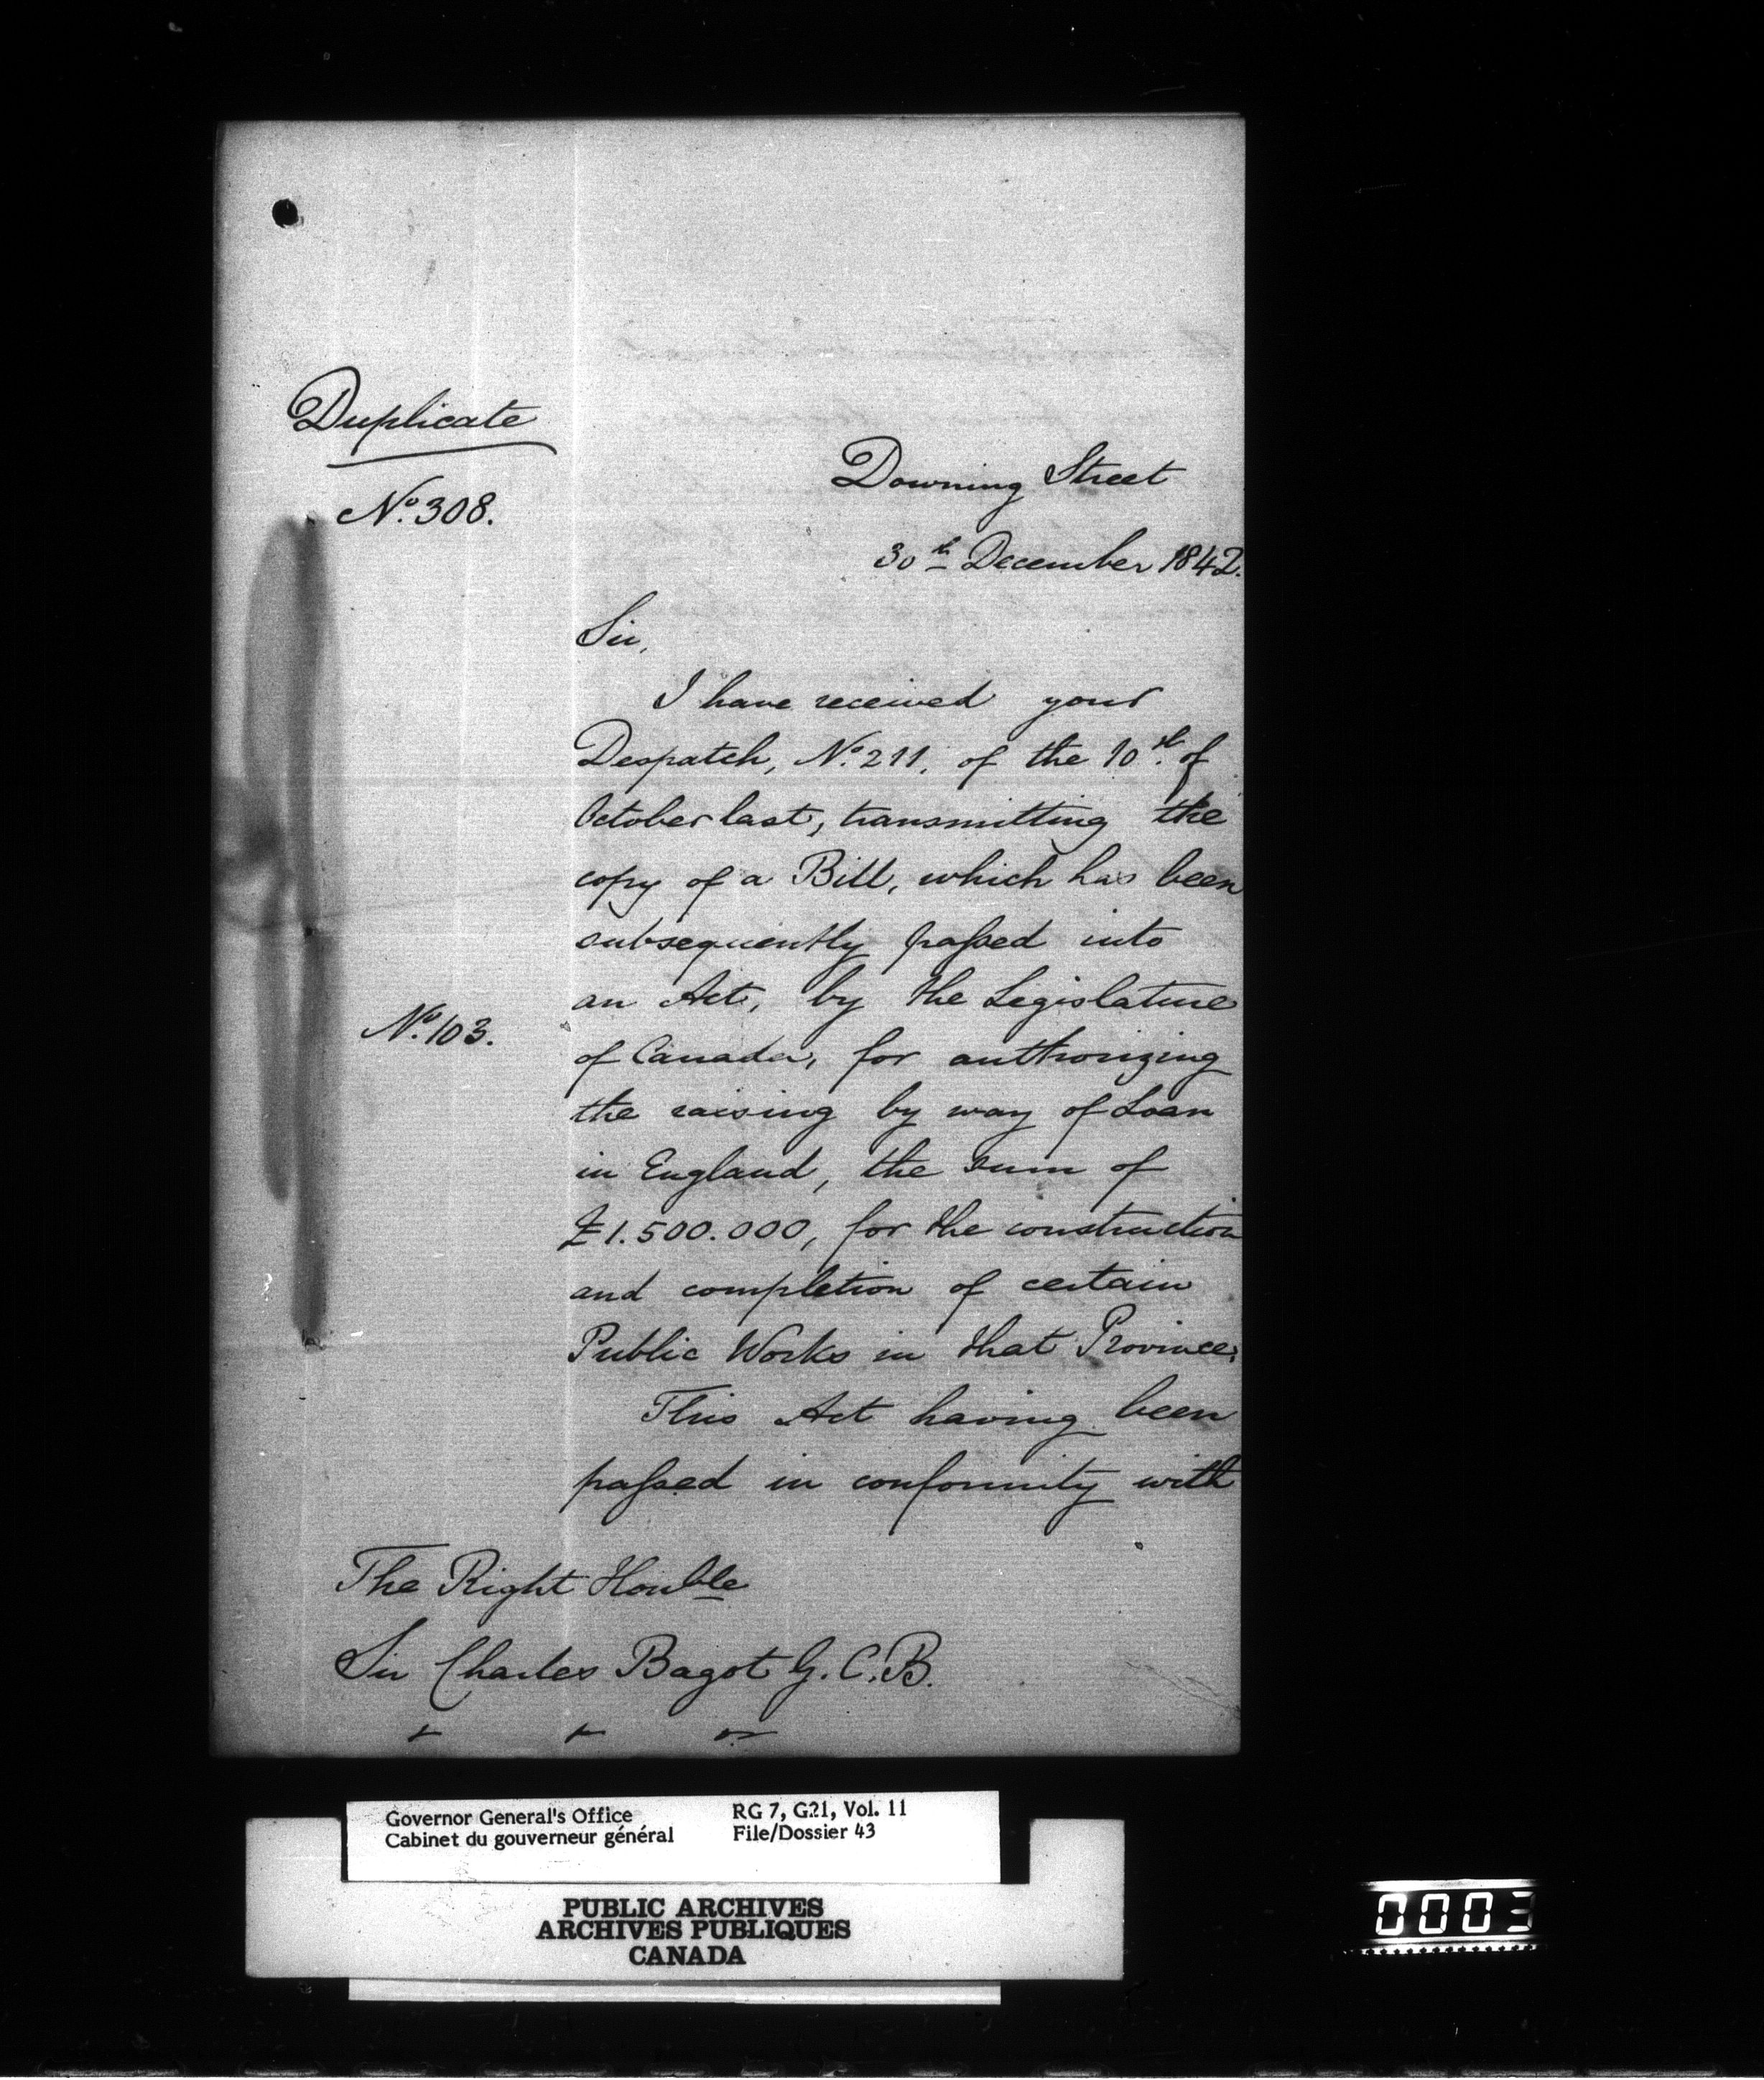 Duplicate
No. 308.
Downing Street
30th December 1842.
Sir,
I have received your
Despatch, No. 211, of the 10th of
October last, transmitting the
copy of a Bill, which has been
subsequently paſsed into
an Act, by the Legislature
No. 103.
of Canada, for authorizing
the raising by way of Loan
in England, the sum of
£1.500.000, for the construction
and completion of certain
Public Works in that Province.
This Act having been
paſsed in conformity with
The Right Honble
Sir Charles Bagot G.C.B.
Governor General's Office
Cabinet du gouverneur général
RG 7, G21, Vol. 11
File/Dossier 43
PUBLIC ARCHIVES
ARCHIVES PUBLIQUES
CANADA
0003